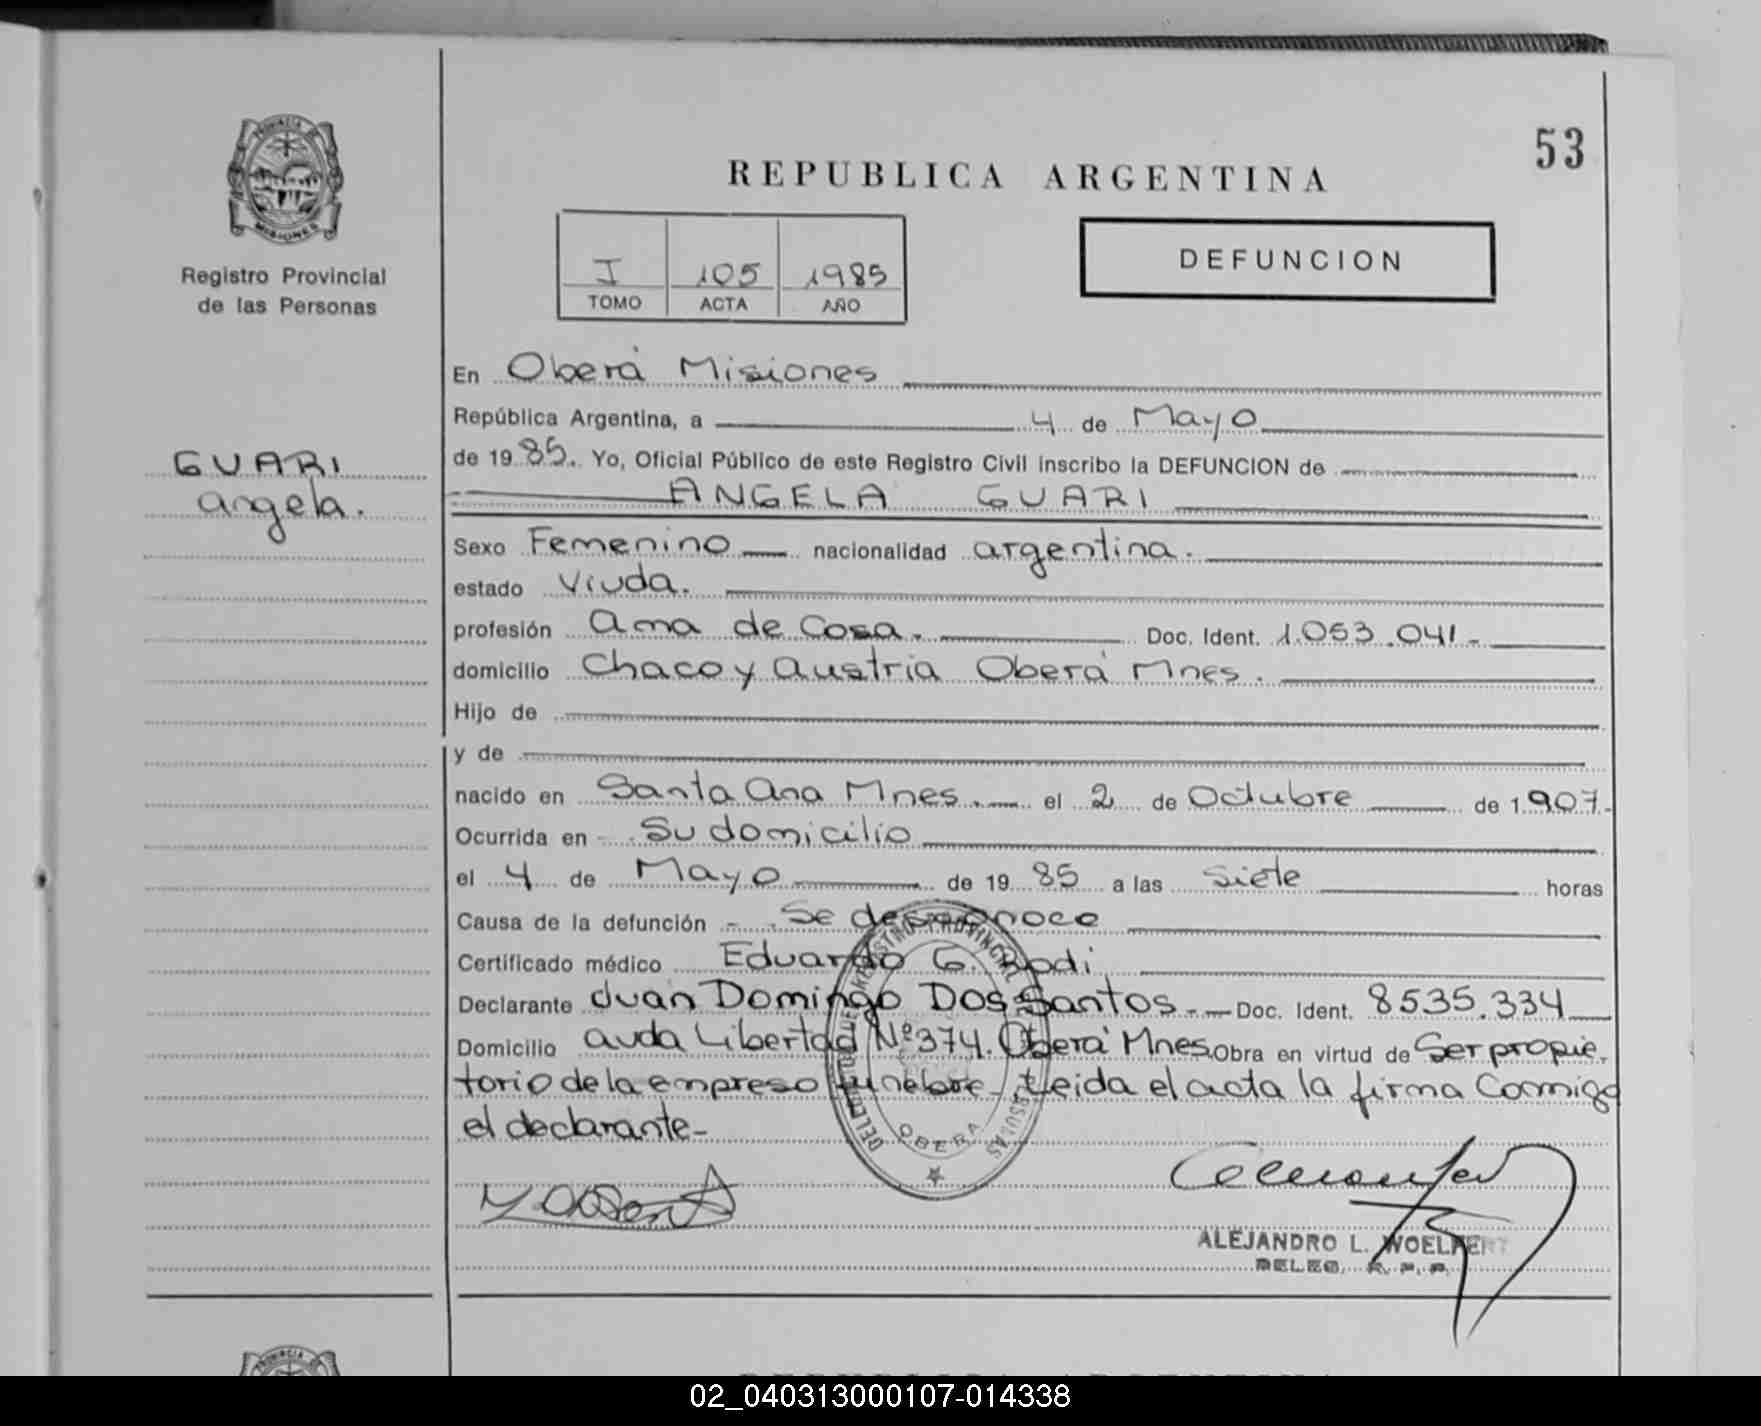 53
PROVINCIA DE
MISIONES
REPUBLICA ARGENTINA
Registro Provincial
de las Personas
I 105 1985
TOMO ACTA AÑO
DEFUNCION
GUARI
Angela.
En Oberá Misiones
República Argentina, a 4 de Mayo
de 1985. Yo, Oficial Público de este Registro Civil inscribo la DEFUNCION de
ANGELA GUARI
Sexo Femenino nacionalidad argentina.
estado Viuda.
profesión Ama de Casa. Doc. Ident. 1.053.041-
domicilio Chaco y Austria Oberá Mnes.
Hijo de
y de
nacido en Santa Ana Mnes. el 2 de Octubre de 1.907-
Ocurrida en Su domicilio
el 4 de Mayo de 1985 a las Siete horas
Causa de la defunción Se desconoce
Certificado médico Eduardo G.
Declarante Juan Domingo Dos Santos.- Doc. Ident. 8535.334
Domicilio Avda Libertad Nº 374. Oberá Mnes. Obra en virtud de Ser propie-
tario de la empresa funebre- Leida el acta la firma Conmigo
el declarante-
OBERA
ALEJANDRO L. WOELFERT
DELEG. R. P. P.
02_040313000107-014338